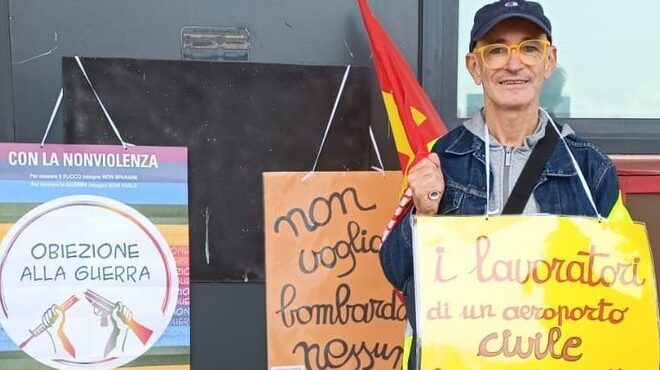 CON LA NONVIOLENZA
Per cessare il FUOCO bisogna NON SPARARE
Per cessare la GUERRA bisogna NON FARLA
OBIEZIONE
ALLA GUERRA
non
voglio
bombarda
nessun
i lavoratori
di un aeroporto
civile